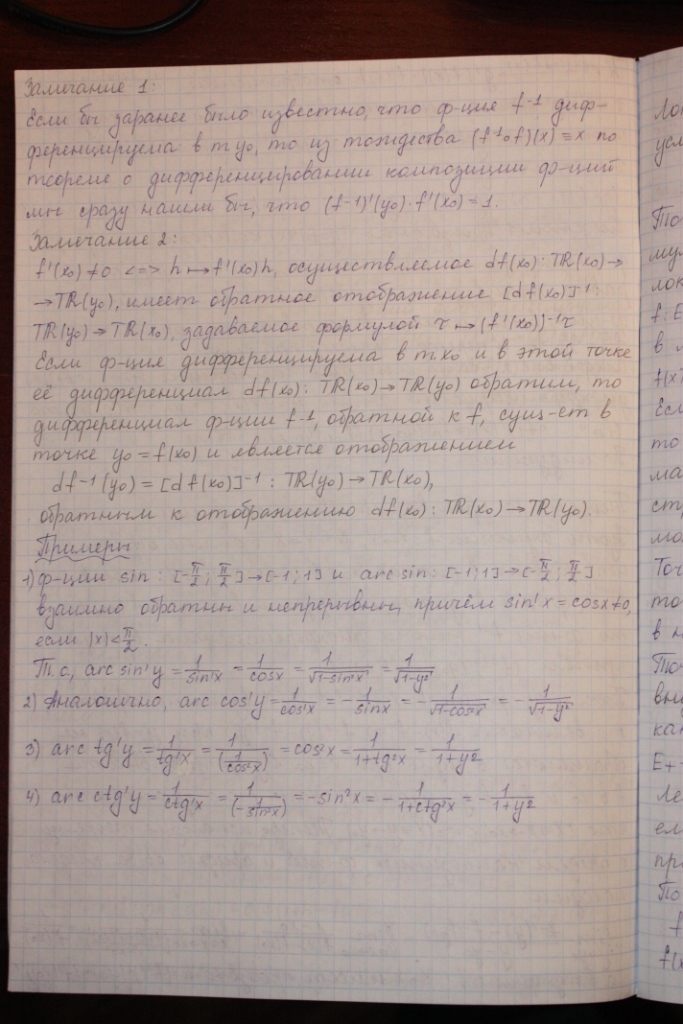 Замечание 1:
Если бы заранее было известно, что ф-ция f⁻¹ диф-
ференцируема в т y₀, то из тождества (f⁻¹∘f)(x) ≡ x по
теореме о дифференцировании композиции ф-ций
мы сразу нашли бы, что (f⁻¹)'(y₀)·f'(x₀)=1.
Замечание 2:
f'(x₀)≠0 <=> h↦f'(x₀)h, осуществляемое df(x₀): Tℝ(x₀)→
→Tℝ(y₀), имеет обратное отображение [df(x₀)]⁻¹:
Tℝ(y₀)→Tℝ(x₀), задаваемое формулой τ↦(f'(x₀))⁻¹τ
Если ф-ция дифференцируема в т x₀ и в этой точке
её дифференциал df(x₀): Tℝ(x₀)→Tℝ(y₀) обратим, то
дифференциал ф-ции f⁻¹, обратной к f, сущ-ет в
точке y₀=f(x₀) и является отображением
df⁻¹(y₀)=[df(x₀)]⁻¹: Tℝ(y₀)→Tℝ(x₀),
обратным к отображению df(x₀): Tℝ(x₀)→Tℝ(y₀).
Примеры
1) ф-ции sin: [-π/2; π/2]→[-1;1] и arcsin: [-1;1]→[-π/2; π/2]
взаимно обратны и непрерывны, причём sin'x = cosx≠0,
если |x|<π/2.
Т.о, arc sin'y = 1/sin'x = 1/cosx = 1/√(1-sin²x) = 1/√(1-y²)
2) Аналогично, arc cos'y = 1/cos'x = -1/sinx = -1/√(1-cos²x) = -1/√(1-y²)
3) arc tg'y = 1/tg'x = 1/(1/cos²x) = cos²x = 1/(1+tg²x) = 1/(1+y²)
4) arc ctg'y = 1/ctg'x = 1/(-1/sin²x) = -sin²x = -1/(1+ctg²x) = -1/(1+y²)